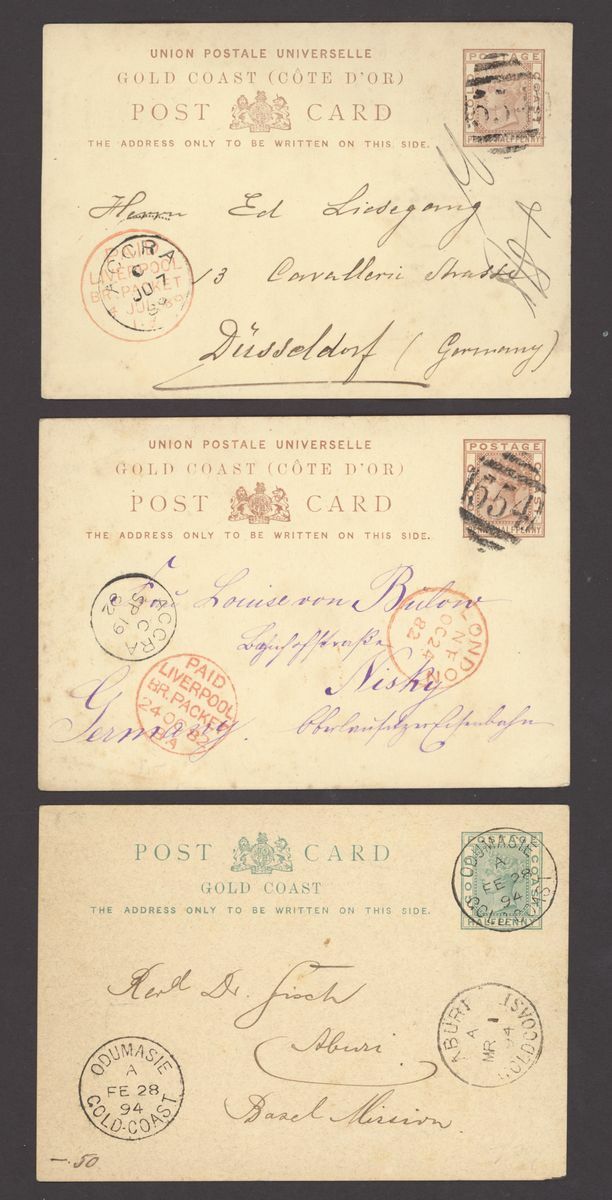 UNION POSTALE UNIVERSELLE
GOLD COAST (CÔTE D'OR)
POST CARD
THE ADDRESS ONLY TO BE WRITTEN ON THIS SIDE.
POSTAGE
GOLD COAST
PENNY HALFPENNY
554
Herrn Ed Liesegang
13 Cavallerie Strasse
Düsseldorf (Germany)
PAID
LIVERPOOL
BR. PACKET
4 JUL 89
ACCRA
C
JU 7
89
UNION POSTALE UNIVERSELLE
GOLD COAST (CÔTE D'OR)
POST CARD
THE ADDRESS ONLY TO BE WRITTEN ON THIS SIDE.
POSTAGE
554
HALFPENNY
ACCRA
C
SP 19
82
Frau Louise von Bülow
Bahnhofstraße
Nisky
Germany. Oberlausitzer Eisenbahn
LONDON
N F
OC 24
82
PAID
LIVERPOOL
BR. PACKET
24 OC 82
POST CARD
GOLD COAST
THE ADDRESS ONLY TO BE WRITTEN ON THIS SIDE.
HALFPENNY
ODUMASIE
A
FE 28
94
GOLD-COAST
Revd Dr. Fisch
Aburi.
Basel Mission.
ABURI
A
MR 1
94
GOLD COAST
ODUMASIE
A
FE 28
94
GOLD-COAST
—.50